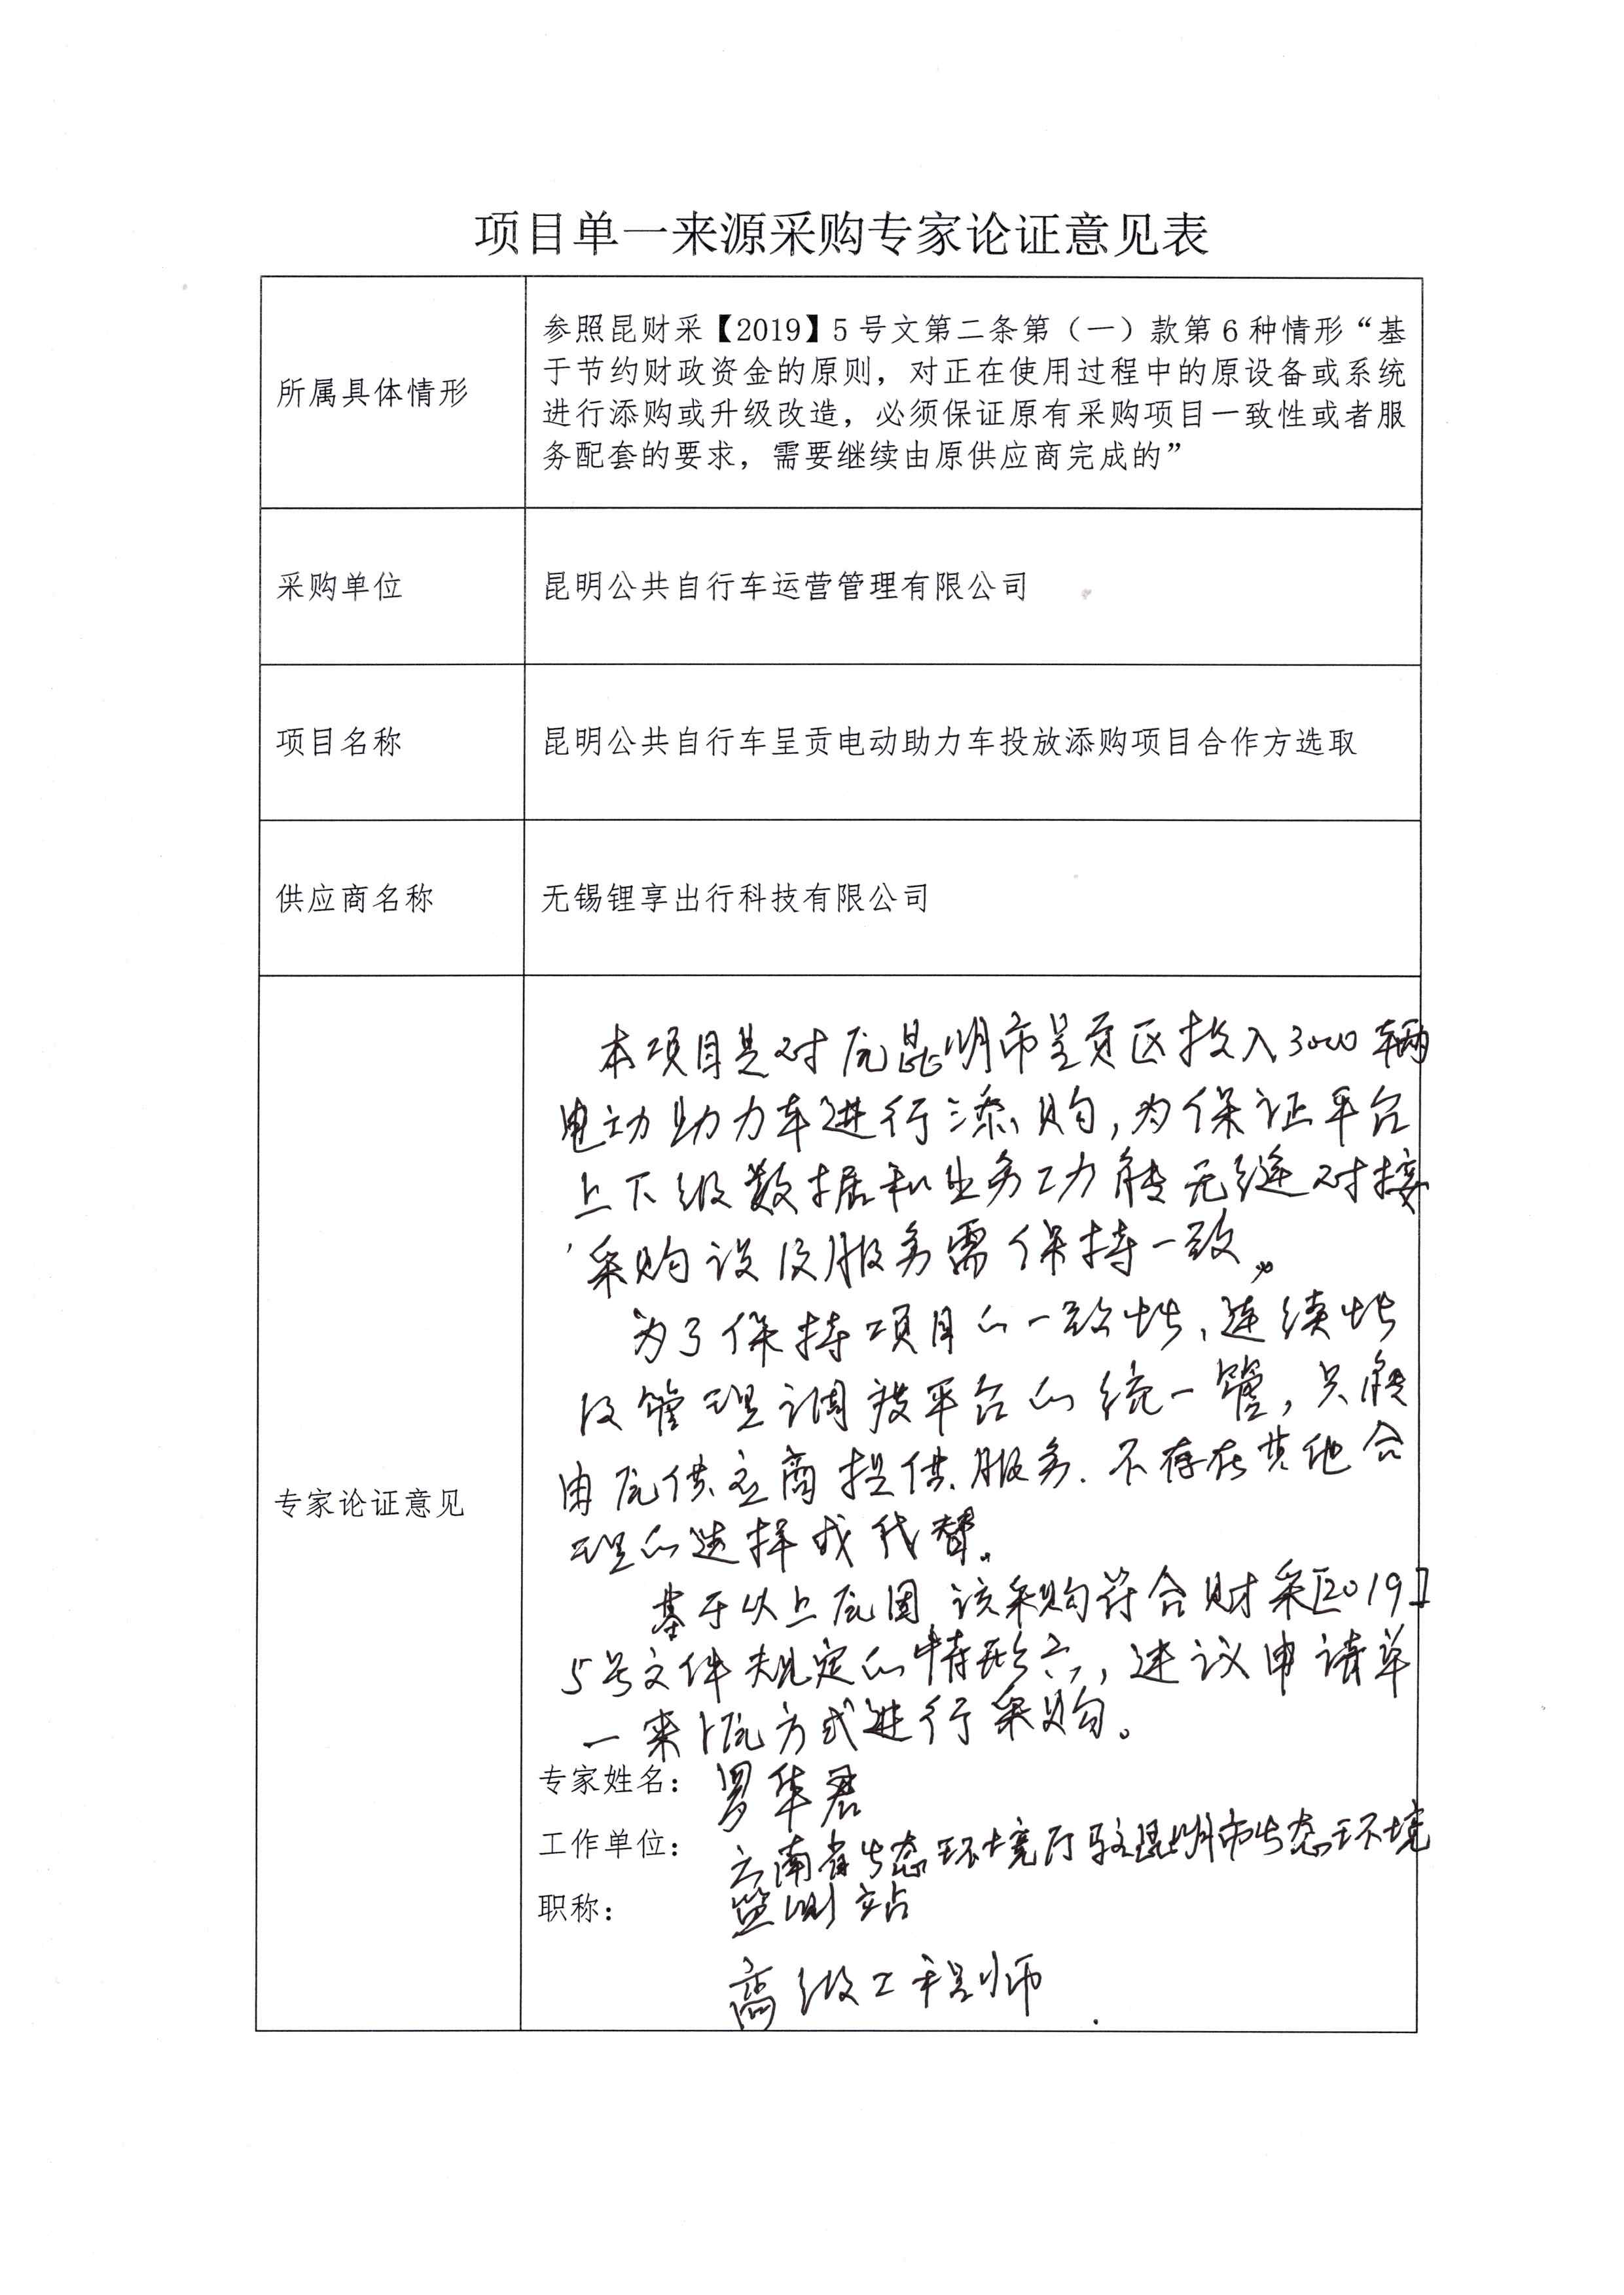 项目单一来源采购专家论证意见表
所属具体情形
参照昆财采【2019】5号文第二条第（一）款第6种情形“基
于节约财政资金的原则，对正在使用过程中的原设备或系统
进行添购或升级改造，必须保证原有采购项目一致性或者服
务配套的要求，需要继续由原供应商完成的”
采购单位
昆明公共自行车运营管理有限公司
项目名称
昆明公共自行车呈贡电动助力车投放添购项目合作方选取
供应商名称
无锡锂享出行科技有限公司
专家论证意见
本项目是对原昆明市呈贡区投入3000辆
电动助力车进行添购,为保证平台
上下级数据和业务功能无缝对接
,采购设及服务需保持一致。
为了保持项目的一致性、连续性
及管理调度平台的统一管,只能
由原供应商提供服务.不存在其他合
理的选择或代替。
基于以上原因,该采购符合财采[2019]
5号文件规定的情形六,建议申请单
一来源方式进行采购。
专家姓名：罗华君
工作单位：云南省生态环境厅驻昆明市生态环境
监测站
职称：
高级工程师